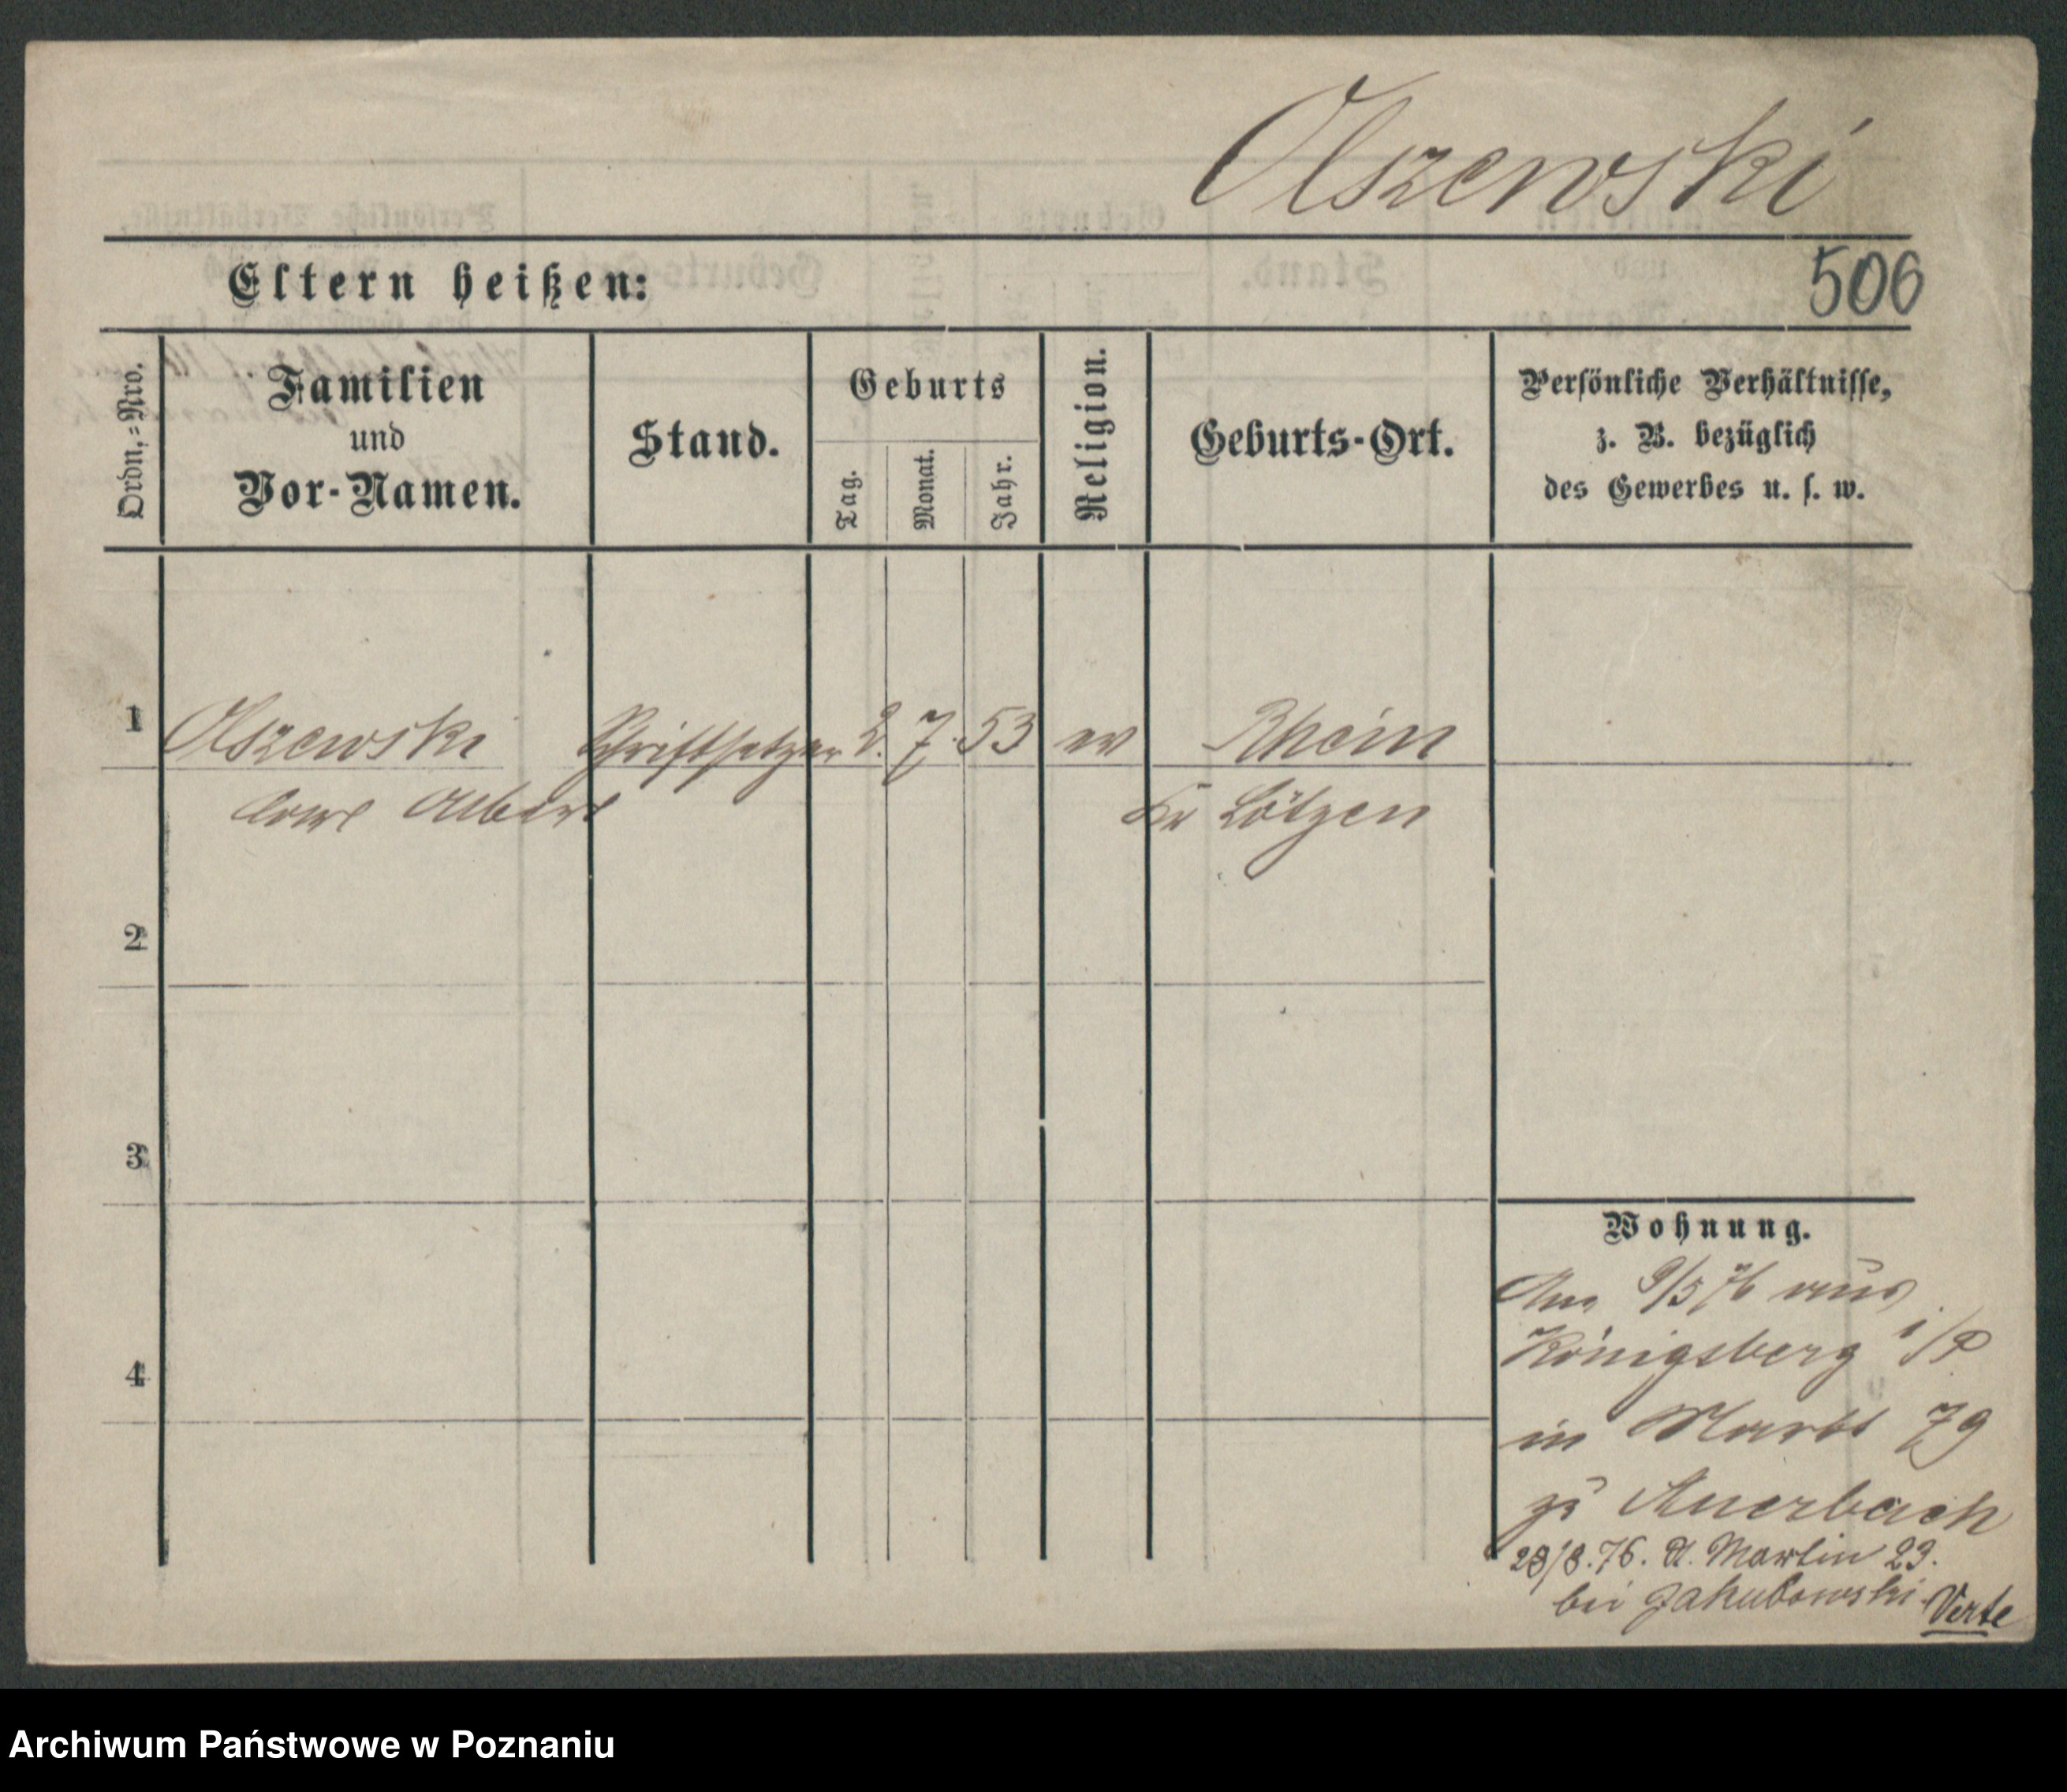 Olszewski
Eltern heißen:
506
Ordn.-Nro.
Familien
und
Vor-Namen.
Stand.
Geburts
Tag.
Monat.
Jahr.
Religion.
Geburts-Ort.
Persönliche Verhältnisse,
z. B. bezüglich
des Gewerbes u. s. w.
1
Olszewski Schriftsetzer 2. 7. 53 ev Rhein
Carl Albert Kr Lötzen
2
3
4
Wohnung.
Am 9/5 76 aus
Königsberg i/P
in Markt 79
zu Auerbach
28/8. 76. St. Martin 23.
bei Jakubowski Verte
Archiwum Państwowe w Poznaniu